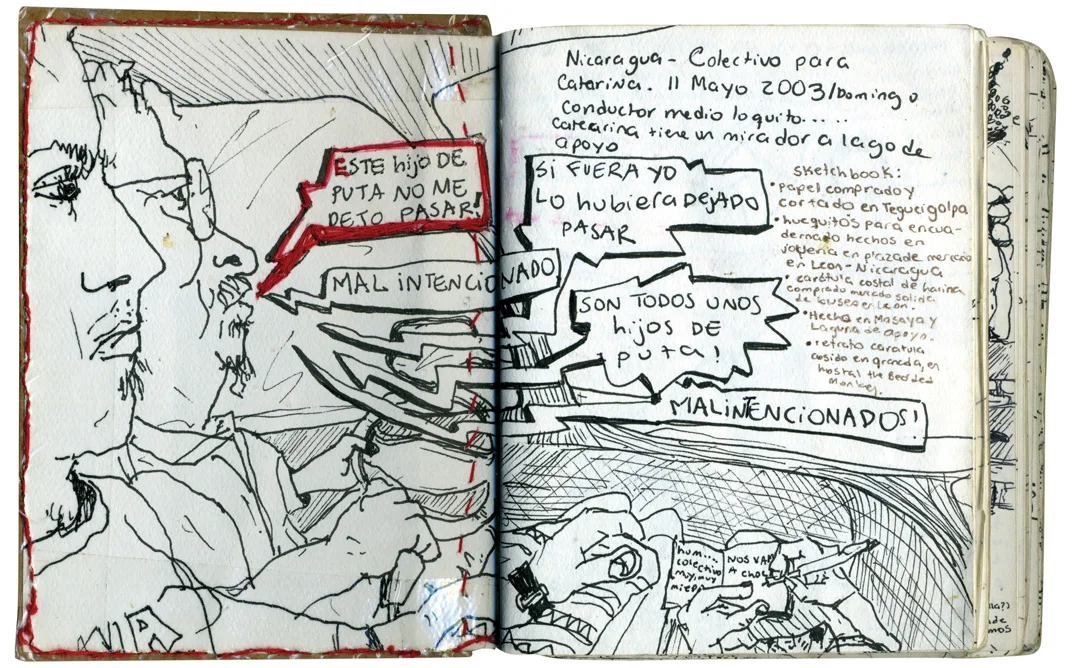 Nicaragua - Colectivo para
Catarina. 11 Mayo 2003/Domingo
Conductor medio loquito.....
Catearina tiene un mirador a lago de
apoyo
ESTE hijo DE
PUTA NO ME
DEJO PASAR!
SI FUERA YO
LO hubiera DEJADO
PASAR
MAL iNTENCIONADO
SON TODOS UNOS
hijos DE
puta!
MALiNTENCIONADOS!
Sketchbook:
• papel comprado y
cortado en Tegucigolpa
• huequitos para encua-
dernado hechos en
joyeria en plaza de mercado
en Leon - Nicaragua
• caratula costal de harina
comprado mercado salida
de buses en León.
• Hecho en Masaya y
Laguna de Apoyo.
• retrato caratula
cosido en granada, en
hostal the Bearded
Monkey
hum...
colectivo
muy, muy
NOS VAN
A